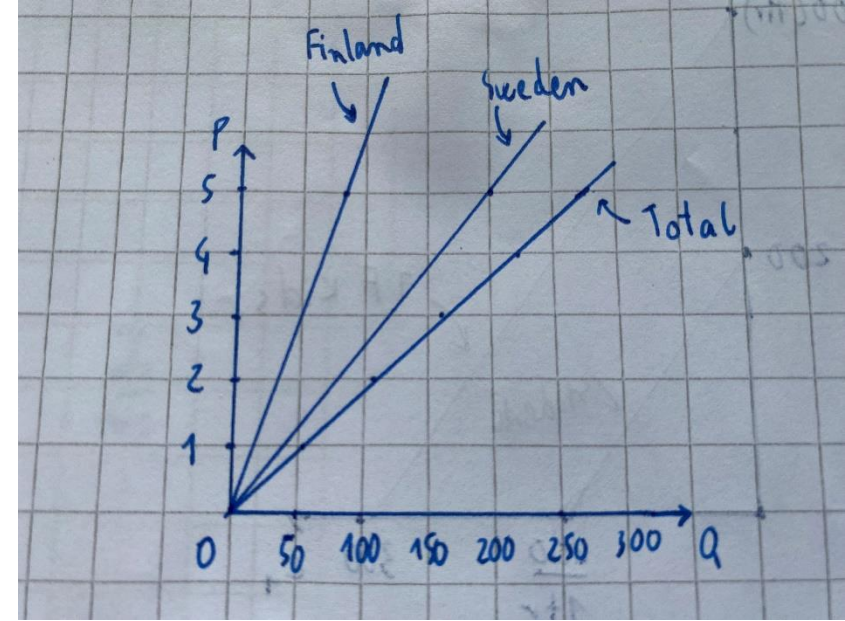 Finland
Sweden
P
5
Total
4
3
2
1
0 50 100 150 200 250 300 Q
200